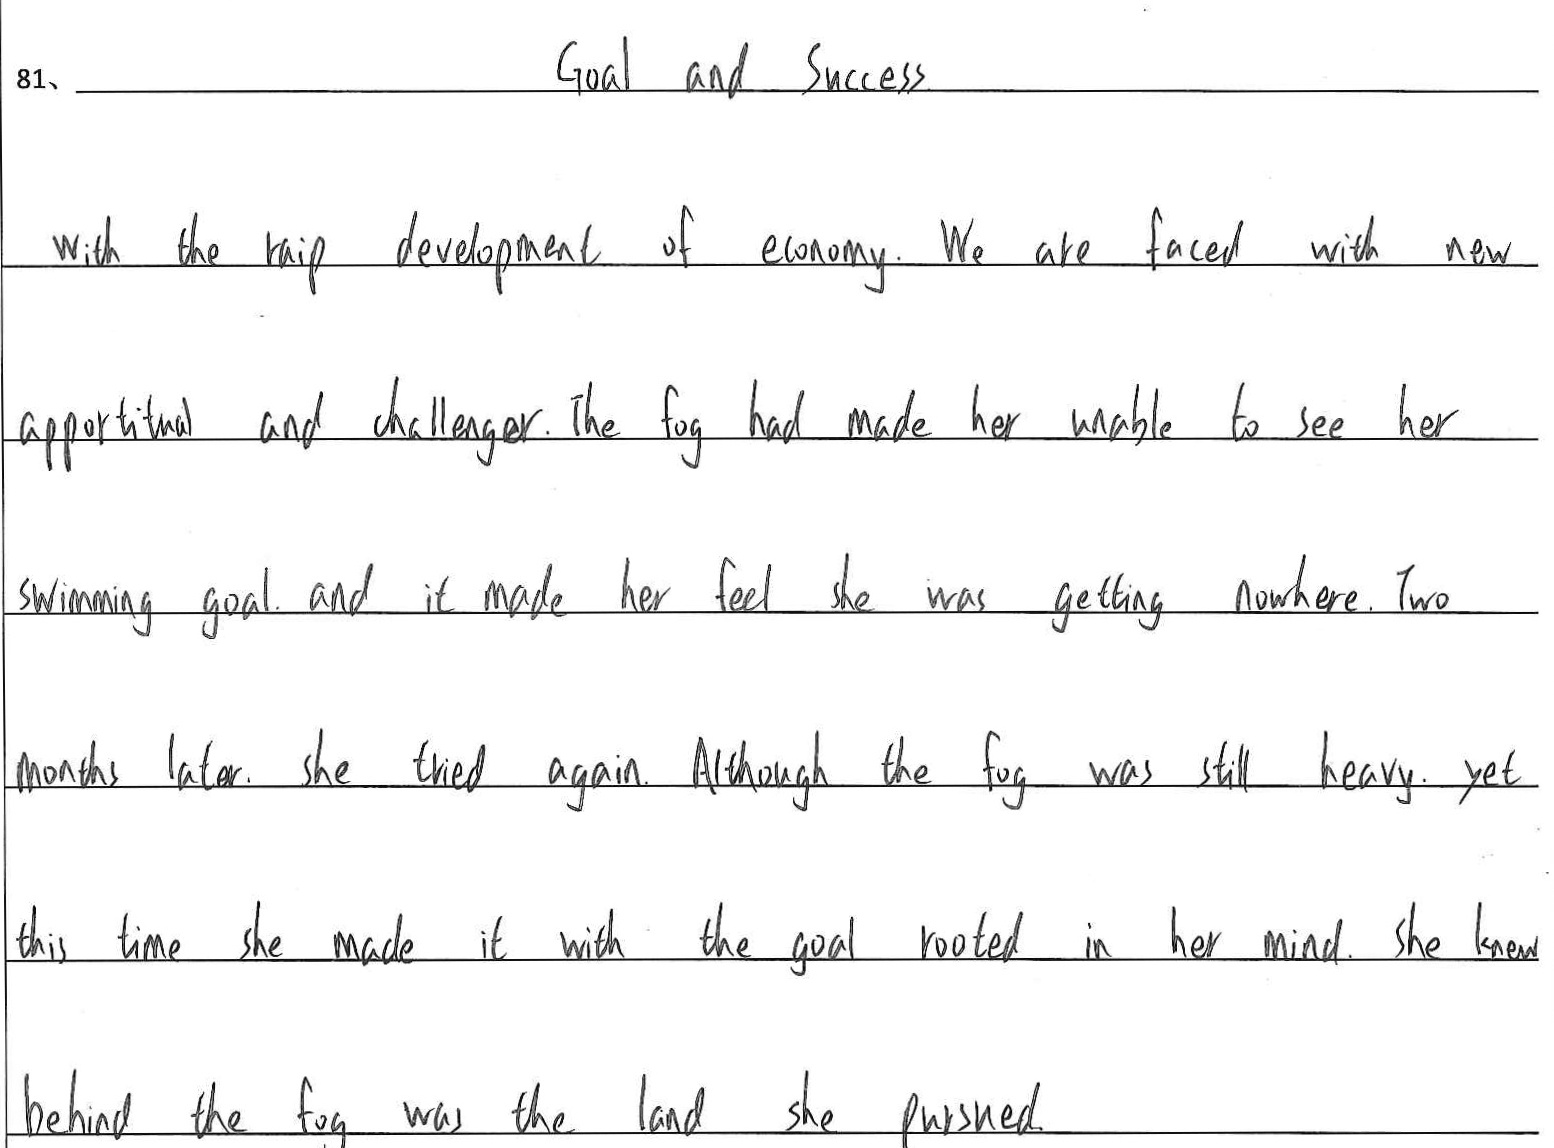 81、 Goal and Success
with the raip development of economy. We are faced with new
apportitual and challenger. The fog had made her unable to see her
swimming goal. and it made her feel she was getting nowhere. Two
months later. she tried again. Although the fog was still heavy. yet
this time she made it with the goal rooted in her mind. she knew
behind the fog was the land she pursued.